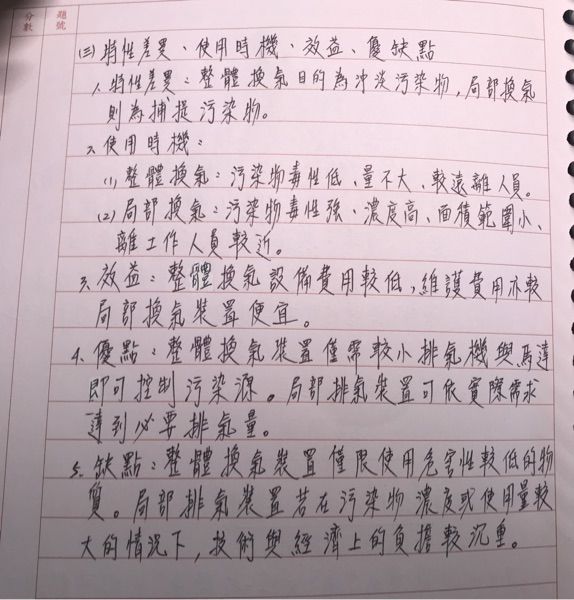 題號
分數
(三)特性差異、使用時機、效益、優缺點
1.特性差異：整體換氣目的為沖淡污染物，局部換氣
則為捕捉污染物。
2.使用時機：
(1)整體換氣：污染物毒性低、量不大、較遠離人員。
(2)局部換氣：污染物毒性強、濃度高、面積範圍小、
離工作人員較近。
3.效益：整體換氣設備費用較低，維護費用亦較
局部換氣裝置便宜。
4.優點：整體換氣裝置僅需較小排氣機與馬達
即可控制污染源。局部排氣裝置可依實際需求
達到必要排氣量。
5.缺點：整體換氣裝置僅限使用危害性較低的物
質。局部排氣裝置若在污染物濃度或使用量較
大的情況下，技術與經濟上的負擔較沉重。